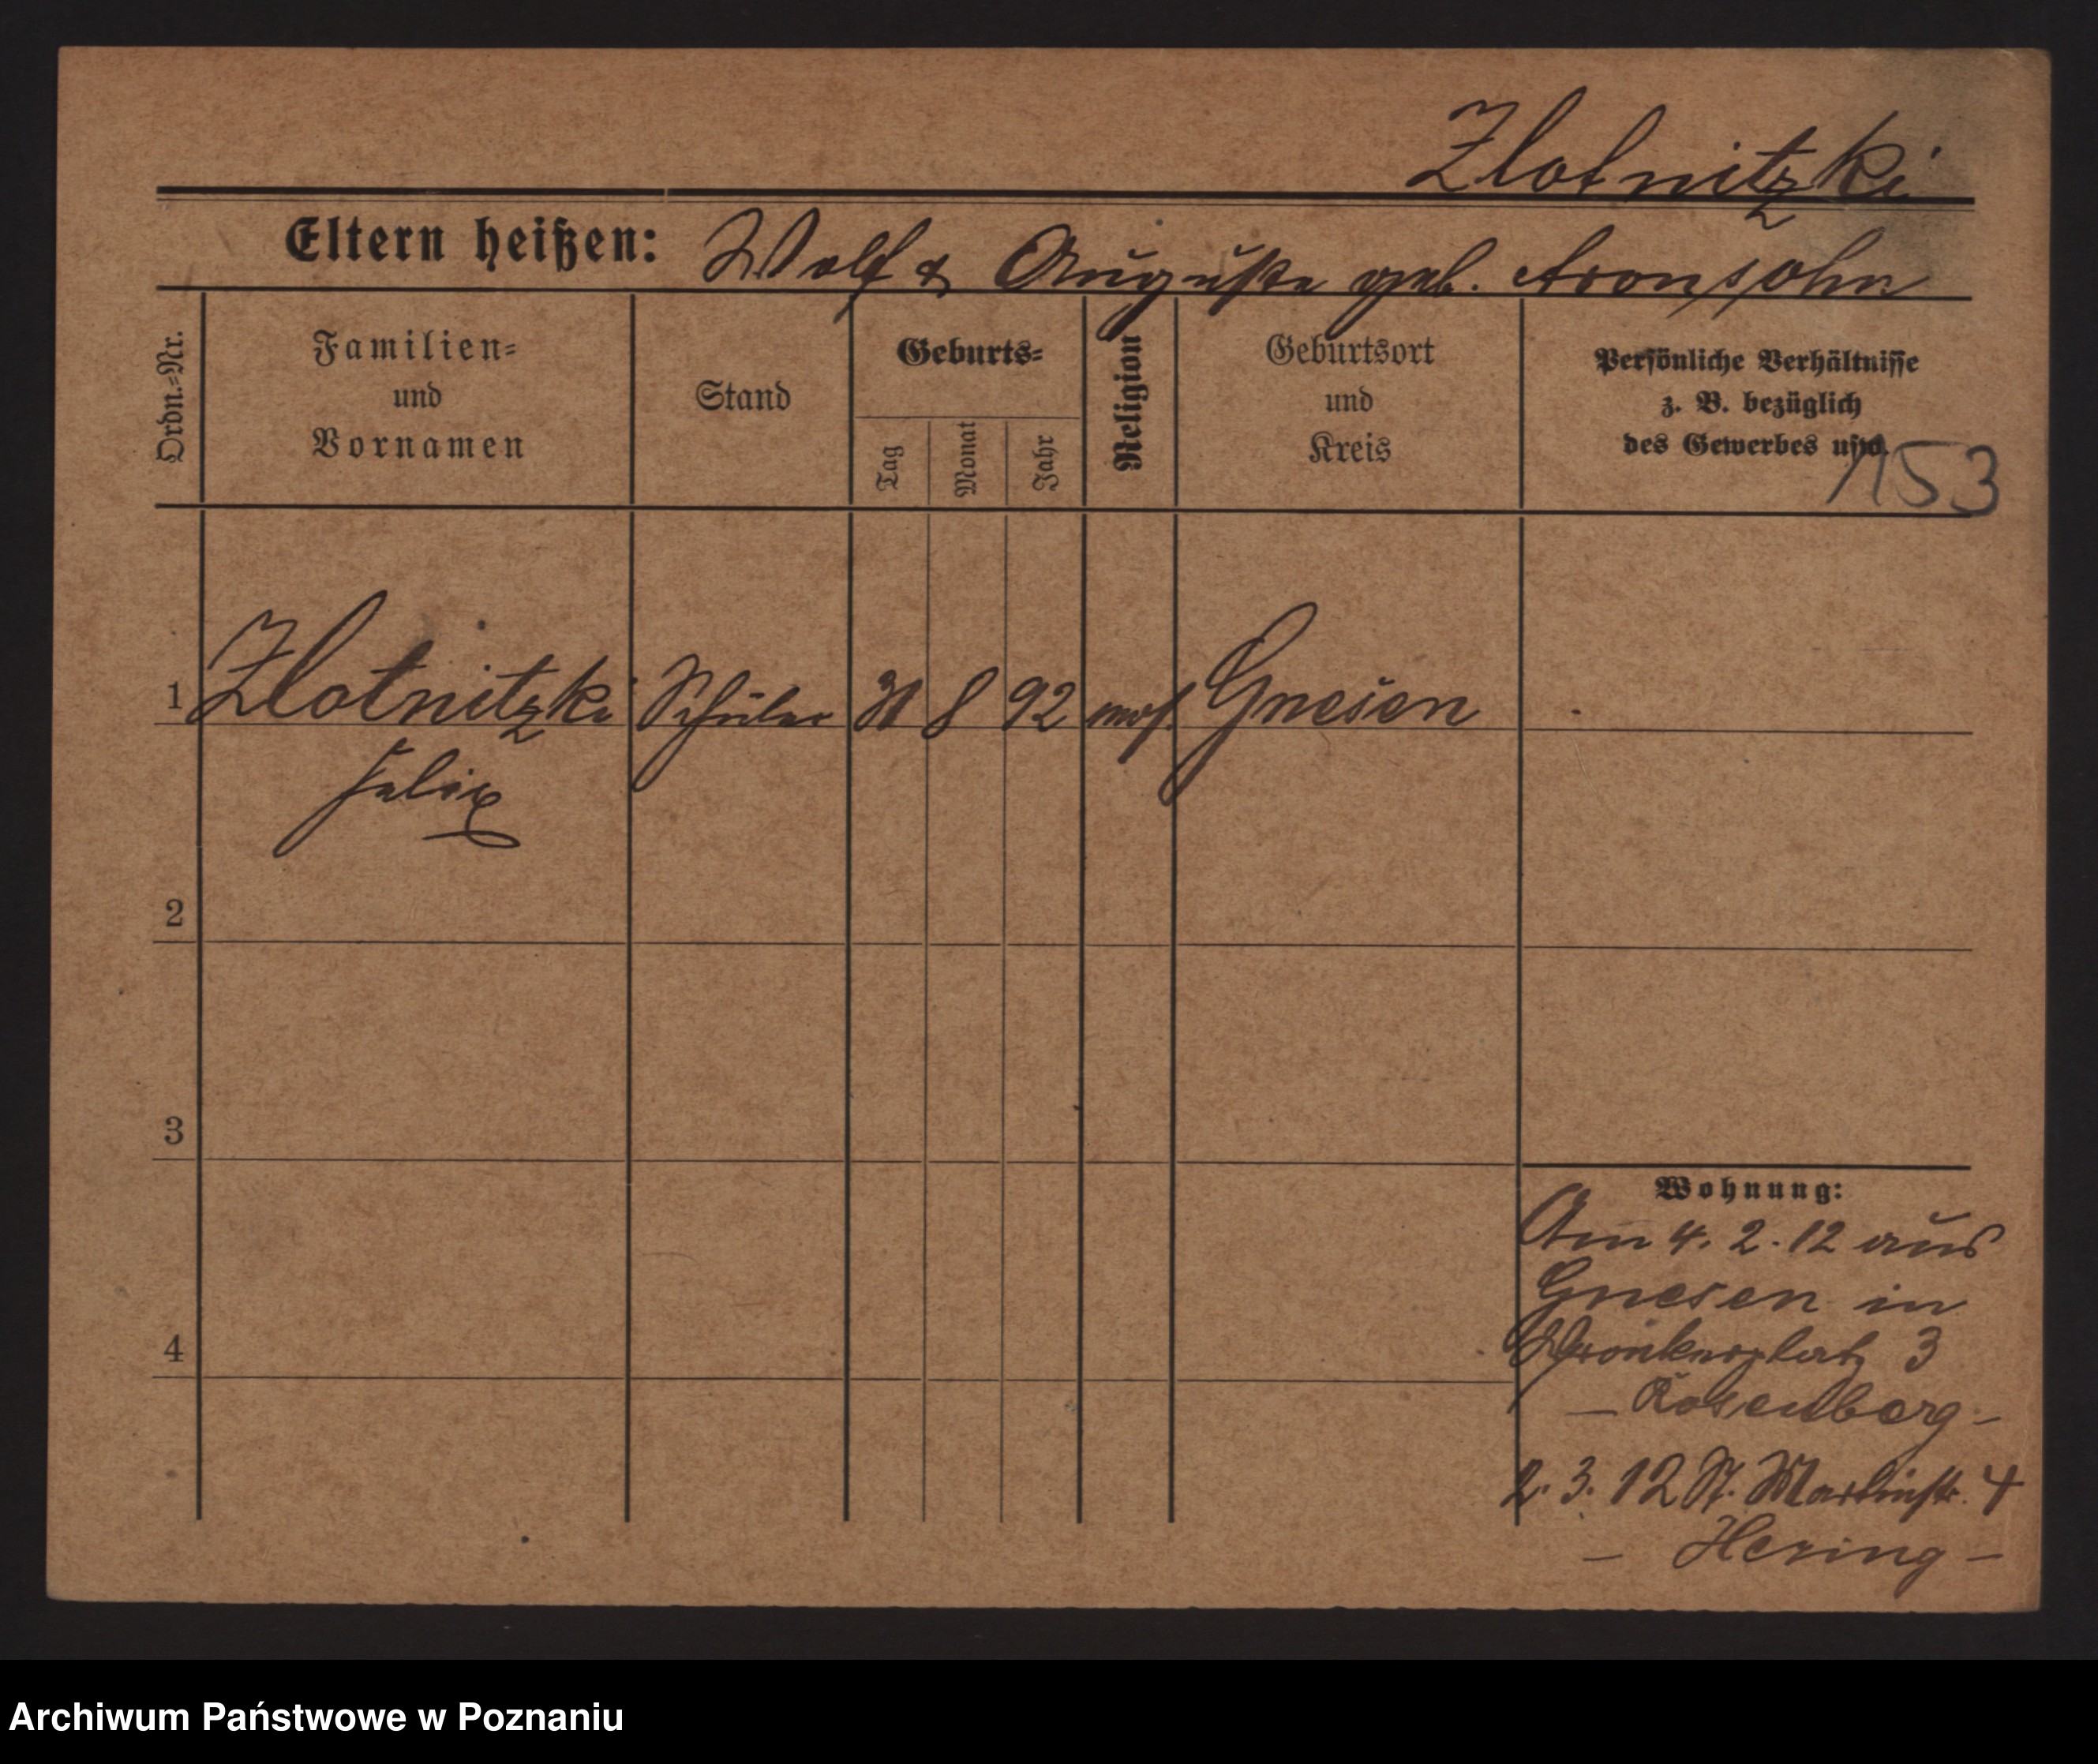 Zlotnitzki
Eltern heißen: Wolf & Auguste geb. Aronsohn
Ordn.=Nr.
Familien=
und
Vornamen
Stand
Geburts=
Tag
Monat
Jahr
Religion
Geburtsort
und
Kreis
Persönliche Verhältnisse
z. B. bezüglich
des Gewerbes usw.
153
1 Zlotnitzki Schüler 31 8 92 mos. Gnesen
Felix
2
3
4
Wohnung:
Am 4. 2. 12 aus
Gnesen in
Wronkerplatz 3
– Rosenberg –
2. 3. 12 St. Martinstr. 4
– Hering –
Archiwum Państwowe w Poznaniu